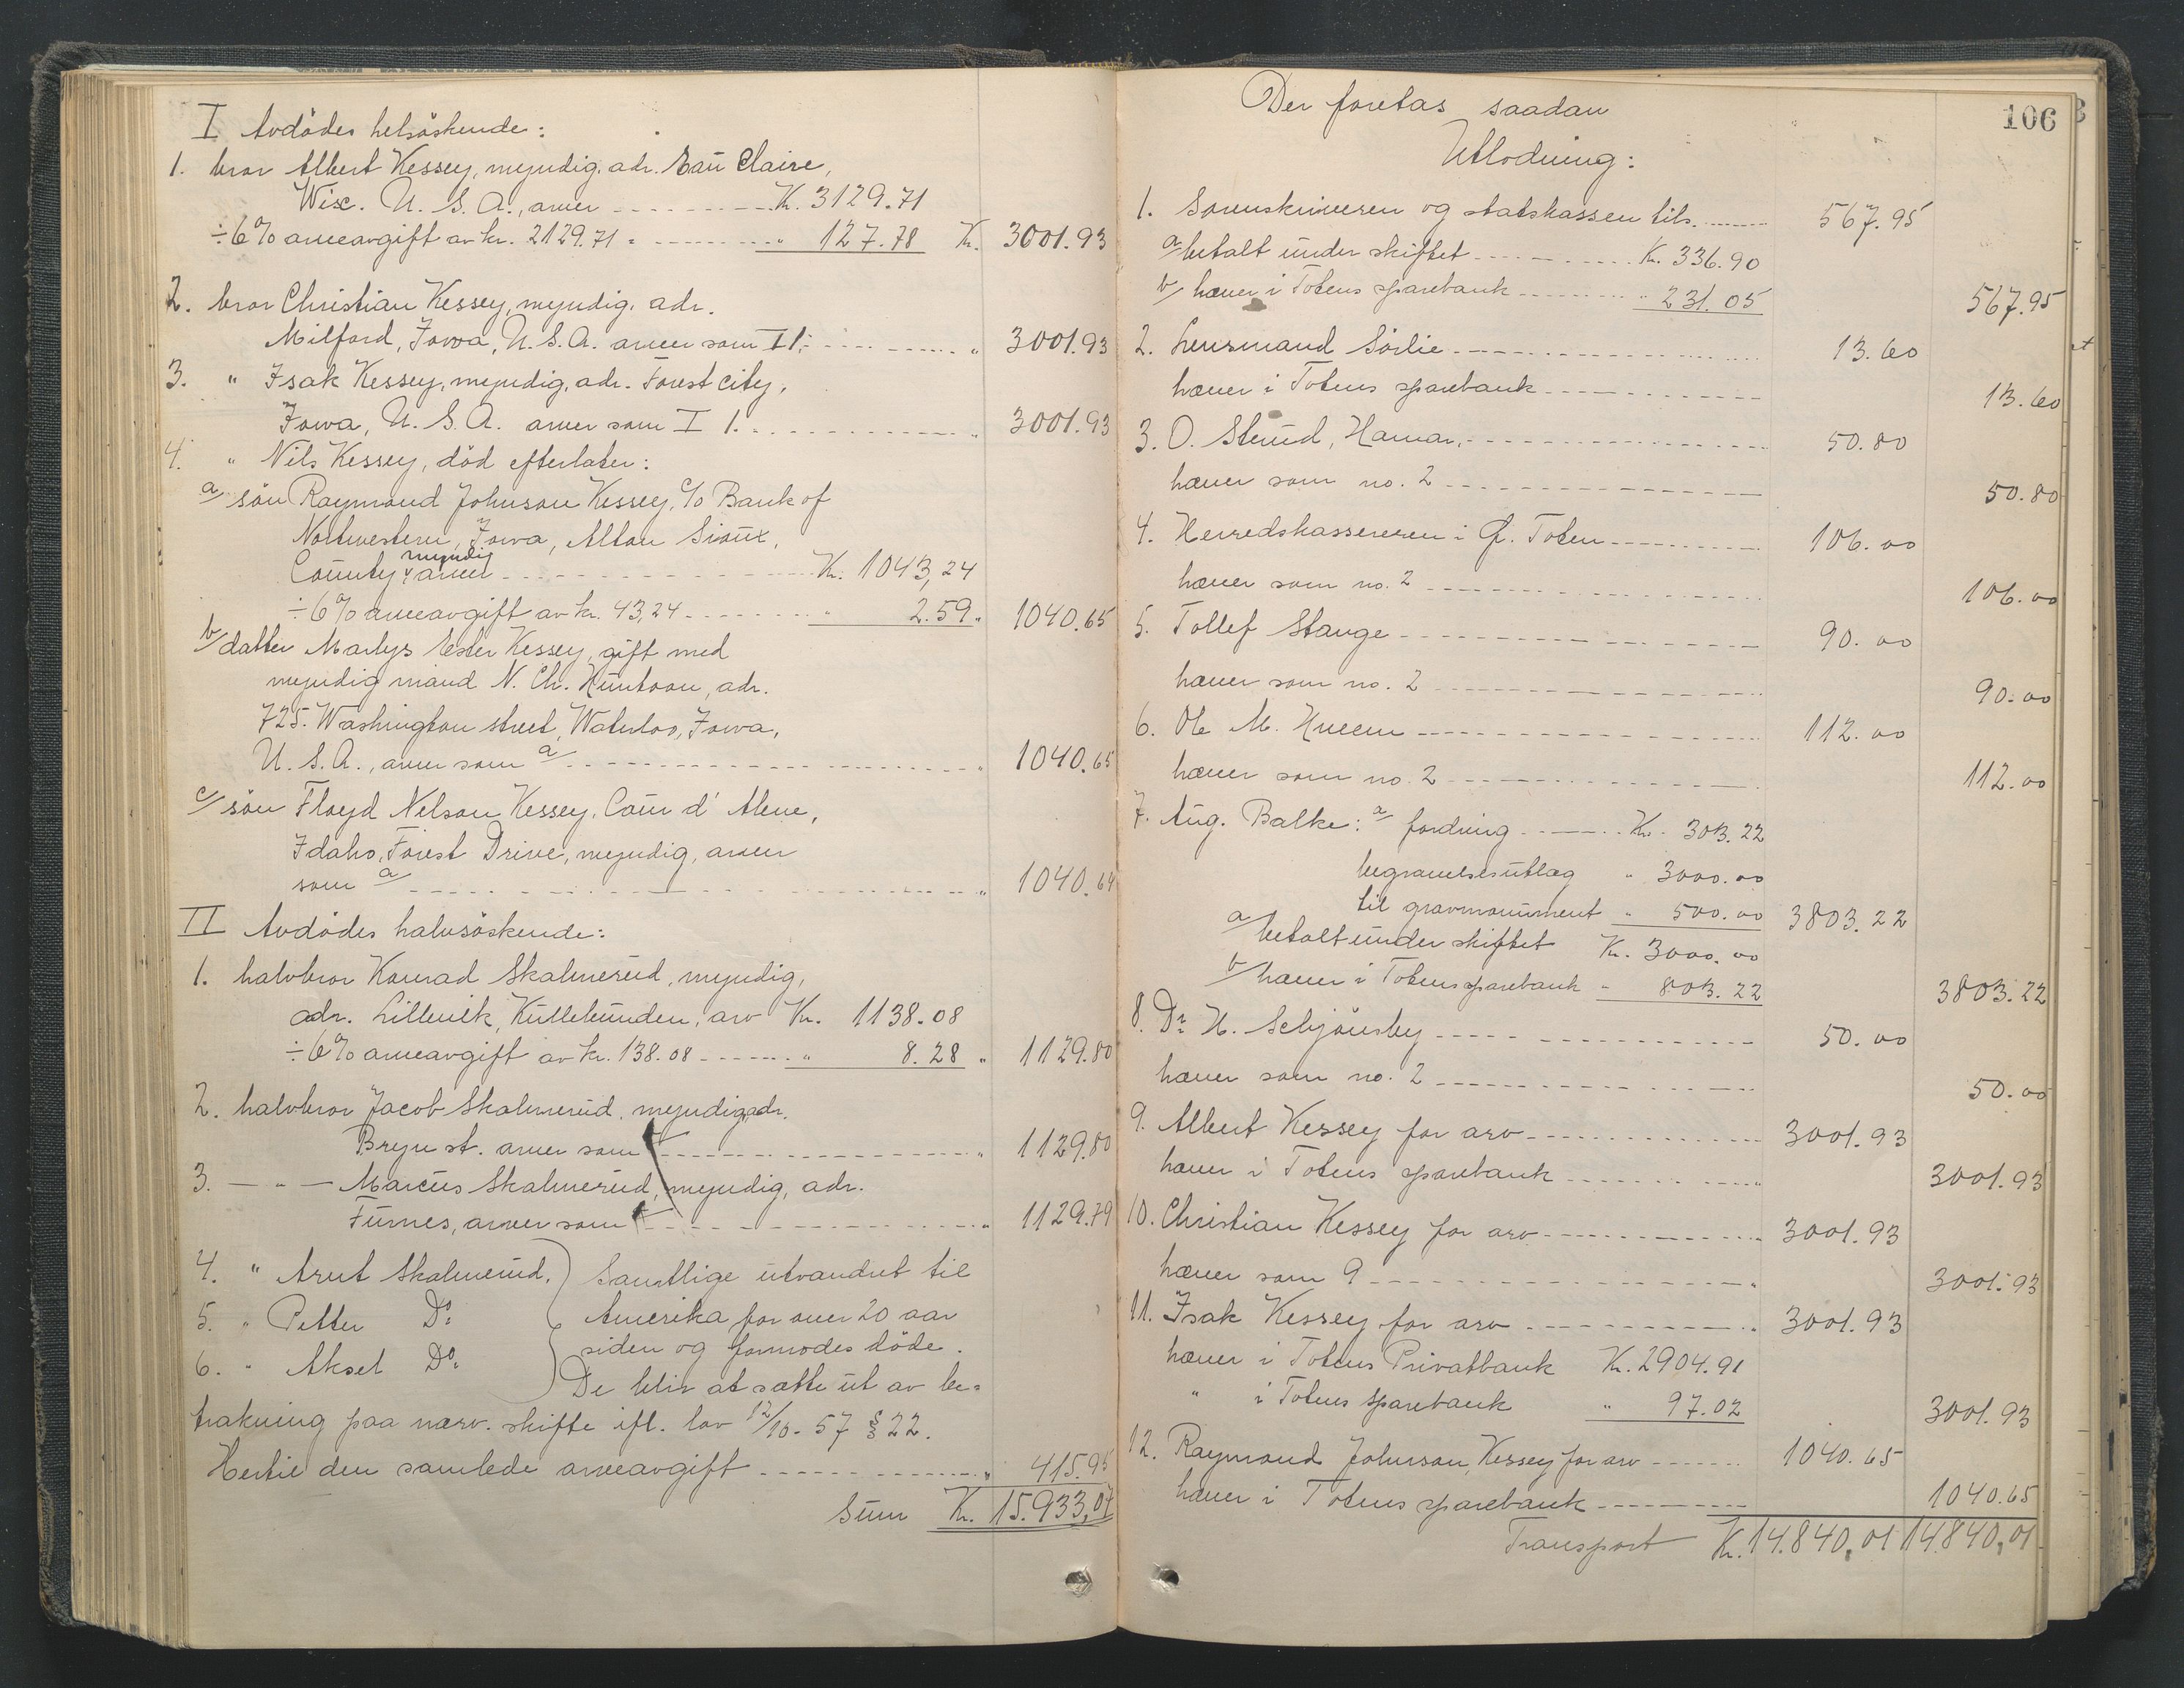 I Avdödes helsöskende:
1. bror Albert Kessey, myndig, adr. Eau Claire,
Wisc. U. S. A., arver Kr. 3129.71
÷ 6% arveavgift av kr. 2129.71 " 127.78 Kr. 3001.93
2. bror Christian Kessey, myndig, adr.
Milford, Iowa, U. S. A. arver som I 1. " 3001.93
3. " Isak Kessey, myndig, adr. Forest City,
Iowa, U. S. A. arver som I 1. " 3001.93
4. " Nils Kessey, död efterlater:
a/ sön Raymond Johnson Kessey, c/o Bank of
Nortwestern, Iowa, Alton Sioux,
myndig
County, arver Kr. 1043,24
÷ 6% arveavgift av kr. 43,24 " 2.59 " 1040.65
b/ datter Marlys Ester Kessey, gift med
myndig mand N. Ch. Huntoon, adr.
725. Washington street, Waterloo, Iowa,
U. S. A., arver som a/ " 1040.65
c/ sön Floyd Nelson Kessey, Coeur d' Alene,
Idaho, Forest Drive, myndig, arver
som a/ " 1040.64
II Avdödes halvsöskende:
1. halvbror Konrad Skalmerud, myndig,
adr. Lillevik, Kullebunden, arv Kr. 1138.08
÷ 6% arveavgift av kr. 138.08 " 8.28 " 1129.80
2. halvbror Jacob Skalmerud, myndig, adr.
Bryn st. arver som " 1129.80
3. — " — Marcus Skalmerud, myndig, adr.
Furnes, arver som " 1129.79
4. " Arnt Skalmerud. Samtlige utvandret til
5. " Petter Do: Amerika for over 20 aar
siden og formodes döde.
6. " Aksel Do: De blir at sætte ut av be-
trakning paa nærv. skifte ifl. lov 12/10-57 § 22.
Hertil den samlede arveavgift " 415.95
Sum Kr. 15.933,07
106
Der foretas saadan
Utlodning:
1. Sorenskriveren og statskassen tils. 567.95
a/ betalt under skiftet Kr. 336.90
b/ hæver i Totens sparebank " 231.05 567.95
2. Lensmand Sörlie 13.60
hæver i Totens sparebank 13.60
3. O. Sterud, Hamar, 50.80
hæver som no. 2 50.80
4. Herredskassereren i Ø. Toten 106.00
hæver som no. 2 106.00
5. Tollef Stange 90.00
hæver som no. 2 90.00
6. Ole M. Hveem 112.00
hæver som no. 2 112.00
7. Aug. Balke: a/ fordring Kr. 303.22
begravelsesutlæg " 3000.00
til gravmonument " 500.00 3803.22
a/ betalt under skiftet Kr. 3000.00
b/ hæver i Totens sparebank " 803.22 3803.22
8. Dr. H. Schjönsby 50.00
hæver som no. 2 50.00
9. Albert Kessey for arv 3001.93
hæver i Totens sparebank 3001.93
10. Christian Kessey for arv 3001.93
hæver som 9 3001.93
11. Isak Kessey for arv 3001.93
hæver i Totens Privatbank Kr. 2904.91
" i Totens sparebank " 97.02 3001.93
12. Raymond Johnson Kessey for arv 1040.65
hæver i Totens sparebank 1040.65
Transport Kr. 14.840,01 14.840,01